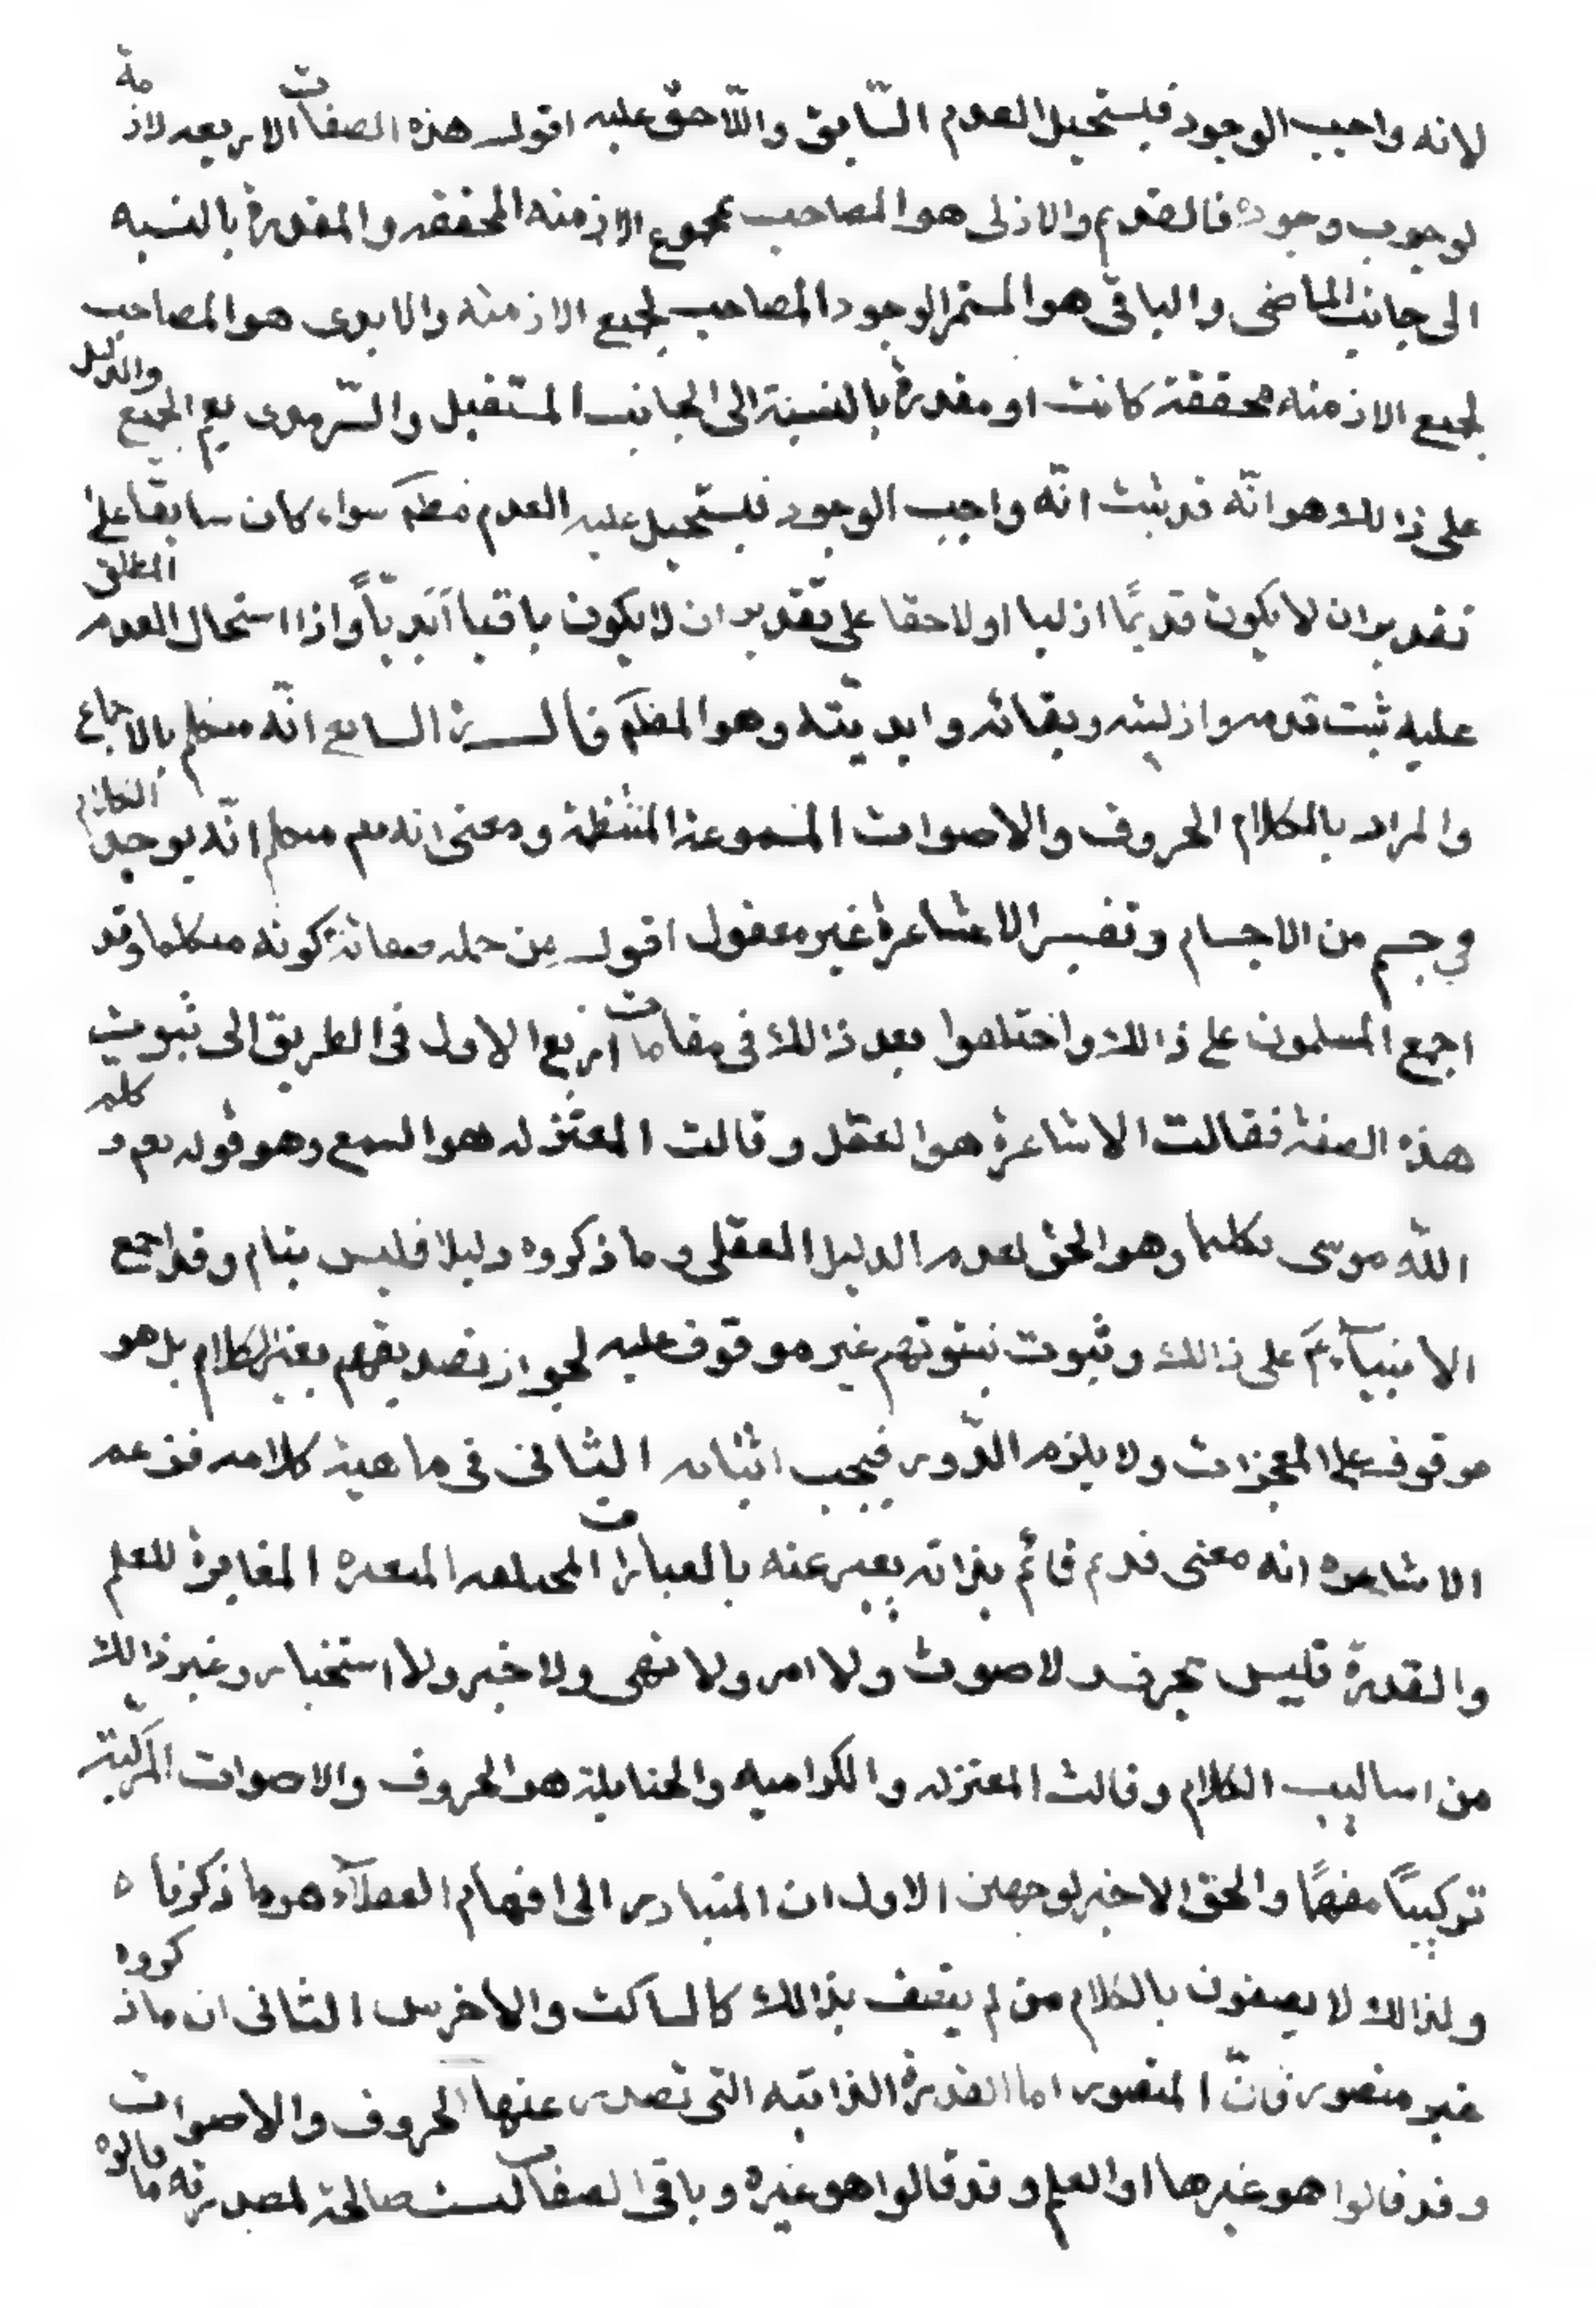 لانه واجب الوجود فيستحيل العدم السّابق واللّاحق عليه اقول هذه الصفات الاربعه لازمة
لوجوب وجوده فالقديم والازلى هو المصاحب بمجموع الازمنه المحققه والمقدرة بالنسبه
الى جانب الماضى والباقى هو المستمر الوجود المصاحب لجميع الازمنه والابدى هو المصاحب
لجميع الازمنه محققة كانت او مقدرة بالنسبة الى الجانب المستقبل والسّرمدى يعم الجميع والدليل
على ذالك هو انّه قد ثبت انّه واجب الوجود فيستحيل عليه العدم مطم سواء كان سابقا على
تقدير ان لا يكون قديمًا ازليا او لاحقا على تقدير ان لا يكون باقيا ابديّاً واذا استحال العدم المطلق
عليه ثبت قدمه وازليته وبقائه وابديّته وهو المطم قال السابع انّه متكلم بالاجماع
والمراد بالكلام الحروف والاصوات المسموعة المنتظمة ومعنى انه تعم متكلم انّه يوجد الكلام
في جسم من الاجسام وتفسير الاشاعرة غير معقول اقول من جمله صفاته كونه متكلما وقد
اجمع المسلمون على ذالك واختلفوا بعد ذالك فى مقامات اربع الاول فى الطريق الى ثبوت
هذه الصفة فقالت الاشاعرة هو العقل وقالت المعتزله هو السمع وهو قوله تعم و كلم
اللّه موسى تكليما وهو الحق لعدم الدليل العقلى وما ذكروه دليلا فليس بتام وقد اجمع
الانبيآء عم على ذالك وثبوت نبوتهم غير موقوف عليه لجواز تصديقهم بغير الكلام بل هو
موقوف على المعجزات ولا يلزم الدّور فيجب اثباته الثانى فى ماهية كلامه فزعم
الاشاعره انه معنى قديم قائم بذاته يعبر عنه بالعبارات المختلفه المتعدده المغايرة للعلم
والقدرة فليس بحرف ولا صوت ولا امر ولا نهى ولا خبر ولا استخبار وغير ذالك
من اساليب الكلام وقالت المعتزله والكراميه والحنابلة هو الحروف والاصوات المركّبة
تركيبًا مفهمًا والحق الاخير لوجهين الاول ان المتبادر الى افهام العقلآء هو ما ذكرناه
ولذالك لا يصفون بالكلام من لم يتصف بذالك كالساكت والاخرس الثانى ان ما ذكروه
غير متصور فانّ المتصور اما القدرة الذاتيه التى تصدر عنها الحروف والاصوات
وقد قالوا هو غيرها او العلم وقد قالوا هو غيره وباقى الصفات ليست صالحة لمصدريّة ما قالوه